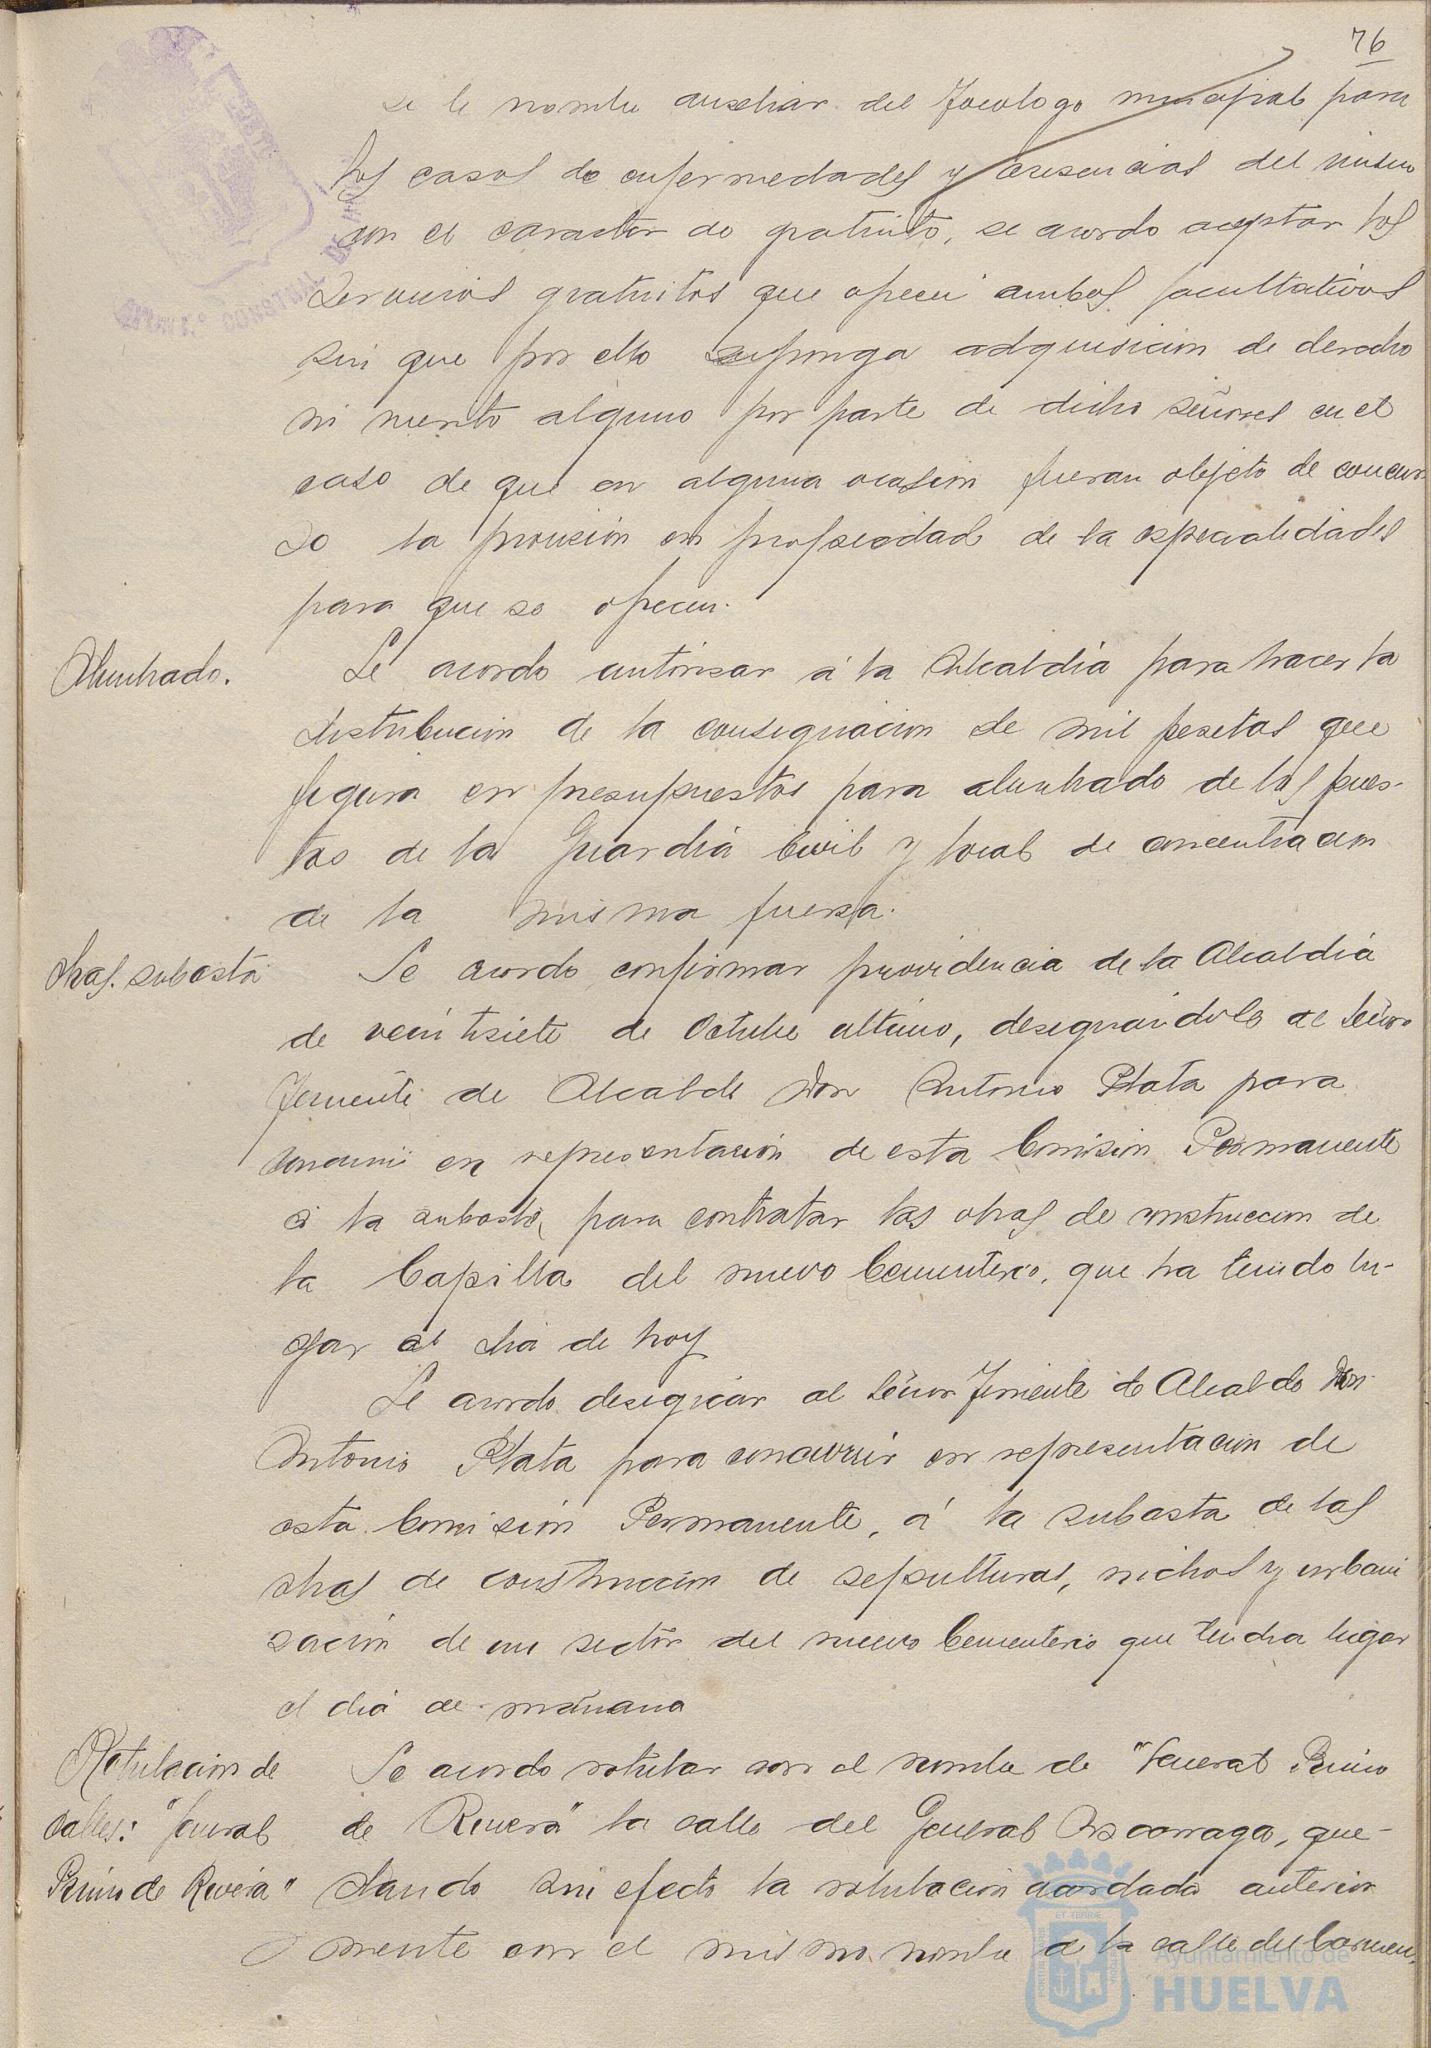 76
se le nombre auxiliar del Tocologo municipal para
los casos de enfermedades y ausencias del mismo
con el caracter de gratuito, se acordo aceptar los
servicios gratuitos que ofrecen ambos facultativos
sin que por ello suponga adquisicion de derecho
ni merito alguno por parte de dicho señores en el
caso de que en alguna ocasion fueran objeto de concur
so la provision en propiedad de la especialidades
para que se ofrecen.
Alumbrado.
Se acordo autorizar á la Alcaldia para hacer la
distribucion de la consignacion de mil pesetas que
figura en presupuestos para alumbrado de los pues-
tos de la Guardia Civil y local de concentracion
de la misma fuerza.
Obras. subasta
Se acordo confirmar providencia de la Alcaldia
de veintisiete de Octubre ultimo, designándole al Señor
Teniente de Alcalde Don Antonio Plata para
concurrir en representación de esta Comision Permanente
á la subasta para contratar las obras de construccion de
la Capilla del nuevo Cementerio, que ha tenido lu-
gar el dia de hoy
Se acordo designar al Señor Teniente de Alcalde Don
Antonio Plata para concurrir en representacion de
esta Comisión Permanente, á la subasta de las
obras de construccion de sepulturas, nichos y urbani
zación de un sector del nuevo Cementerio que tendra lugar
el dia de mañana
Rotulacion de
calles: "General
Primo de Rivera"
Se acordo rotular con el nombre de "General Primo
de Rivera" la calle del General Azcarraga, que-
dando sin efecto la rotulacion acordada anterior
mente con el mismo nombre a la calle del Carmen.
Ayuntamiento de
HUELVA